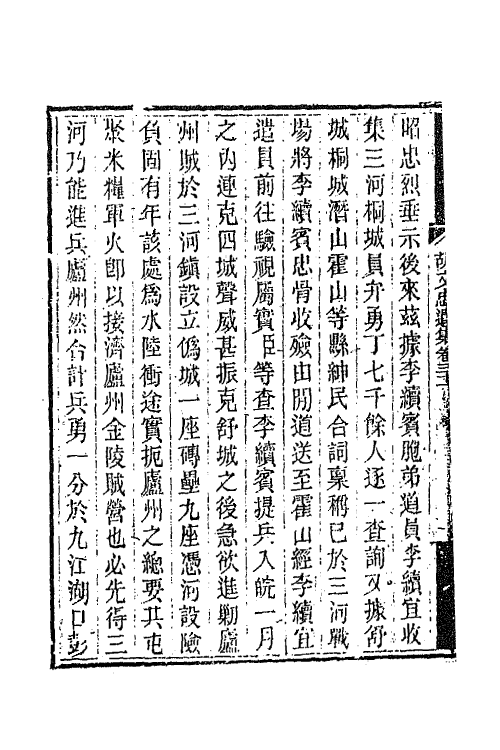 昭忠烈垂示後來茲據李續賓胞弟道員李續宜收
集三河桐城員弁勇丁七千餘人逐一查詢又據舒
城桐城潛山霍山等縣紳民合詞稟稱已於三河戰
場將李續賓忠骨收殮由間道送至霍山經李續宜
遣員前往驗視屬實臣等查李續賓提兵入皖一月
之內連克四城聲威甚振克舒城之後急欲進勦廬
州賊於三河鎮設立僞城一座磚壘九座憑河設險
負固有年該處爲水陸衝途實扼廬州之總要其屯
聚米糧軍火卽以接濟廬州金陵賊營也必先得三
河乃能進兵廬州然合計兵勇一分於九江湖口彭
胡文忠遺集卷三十